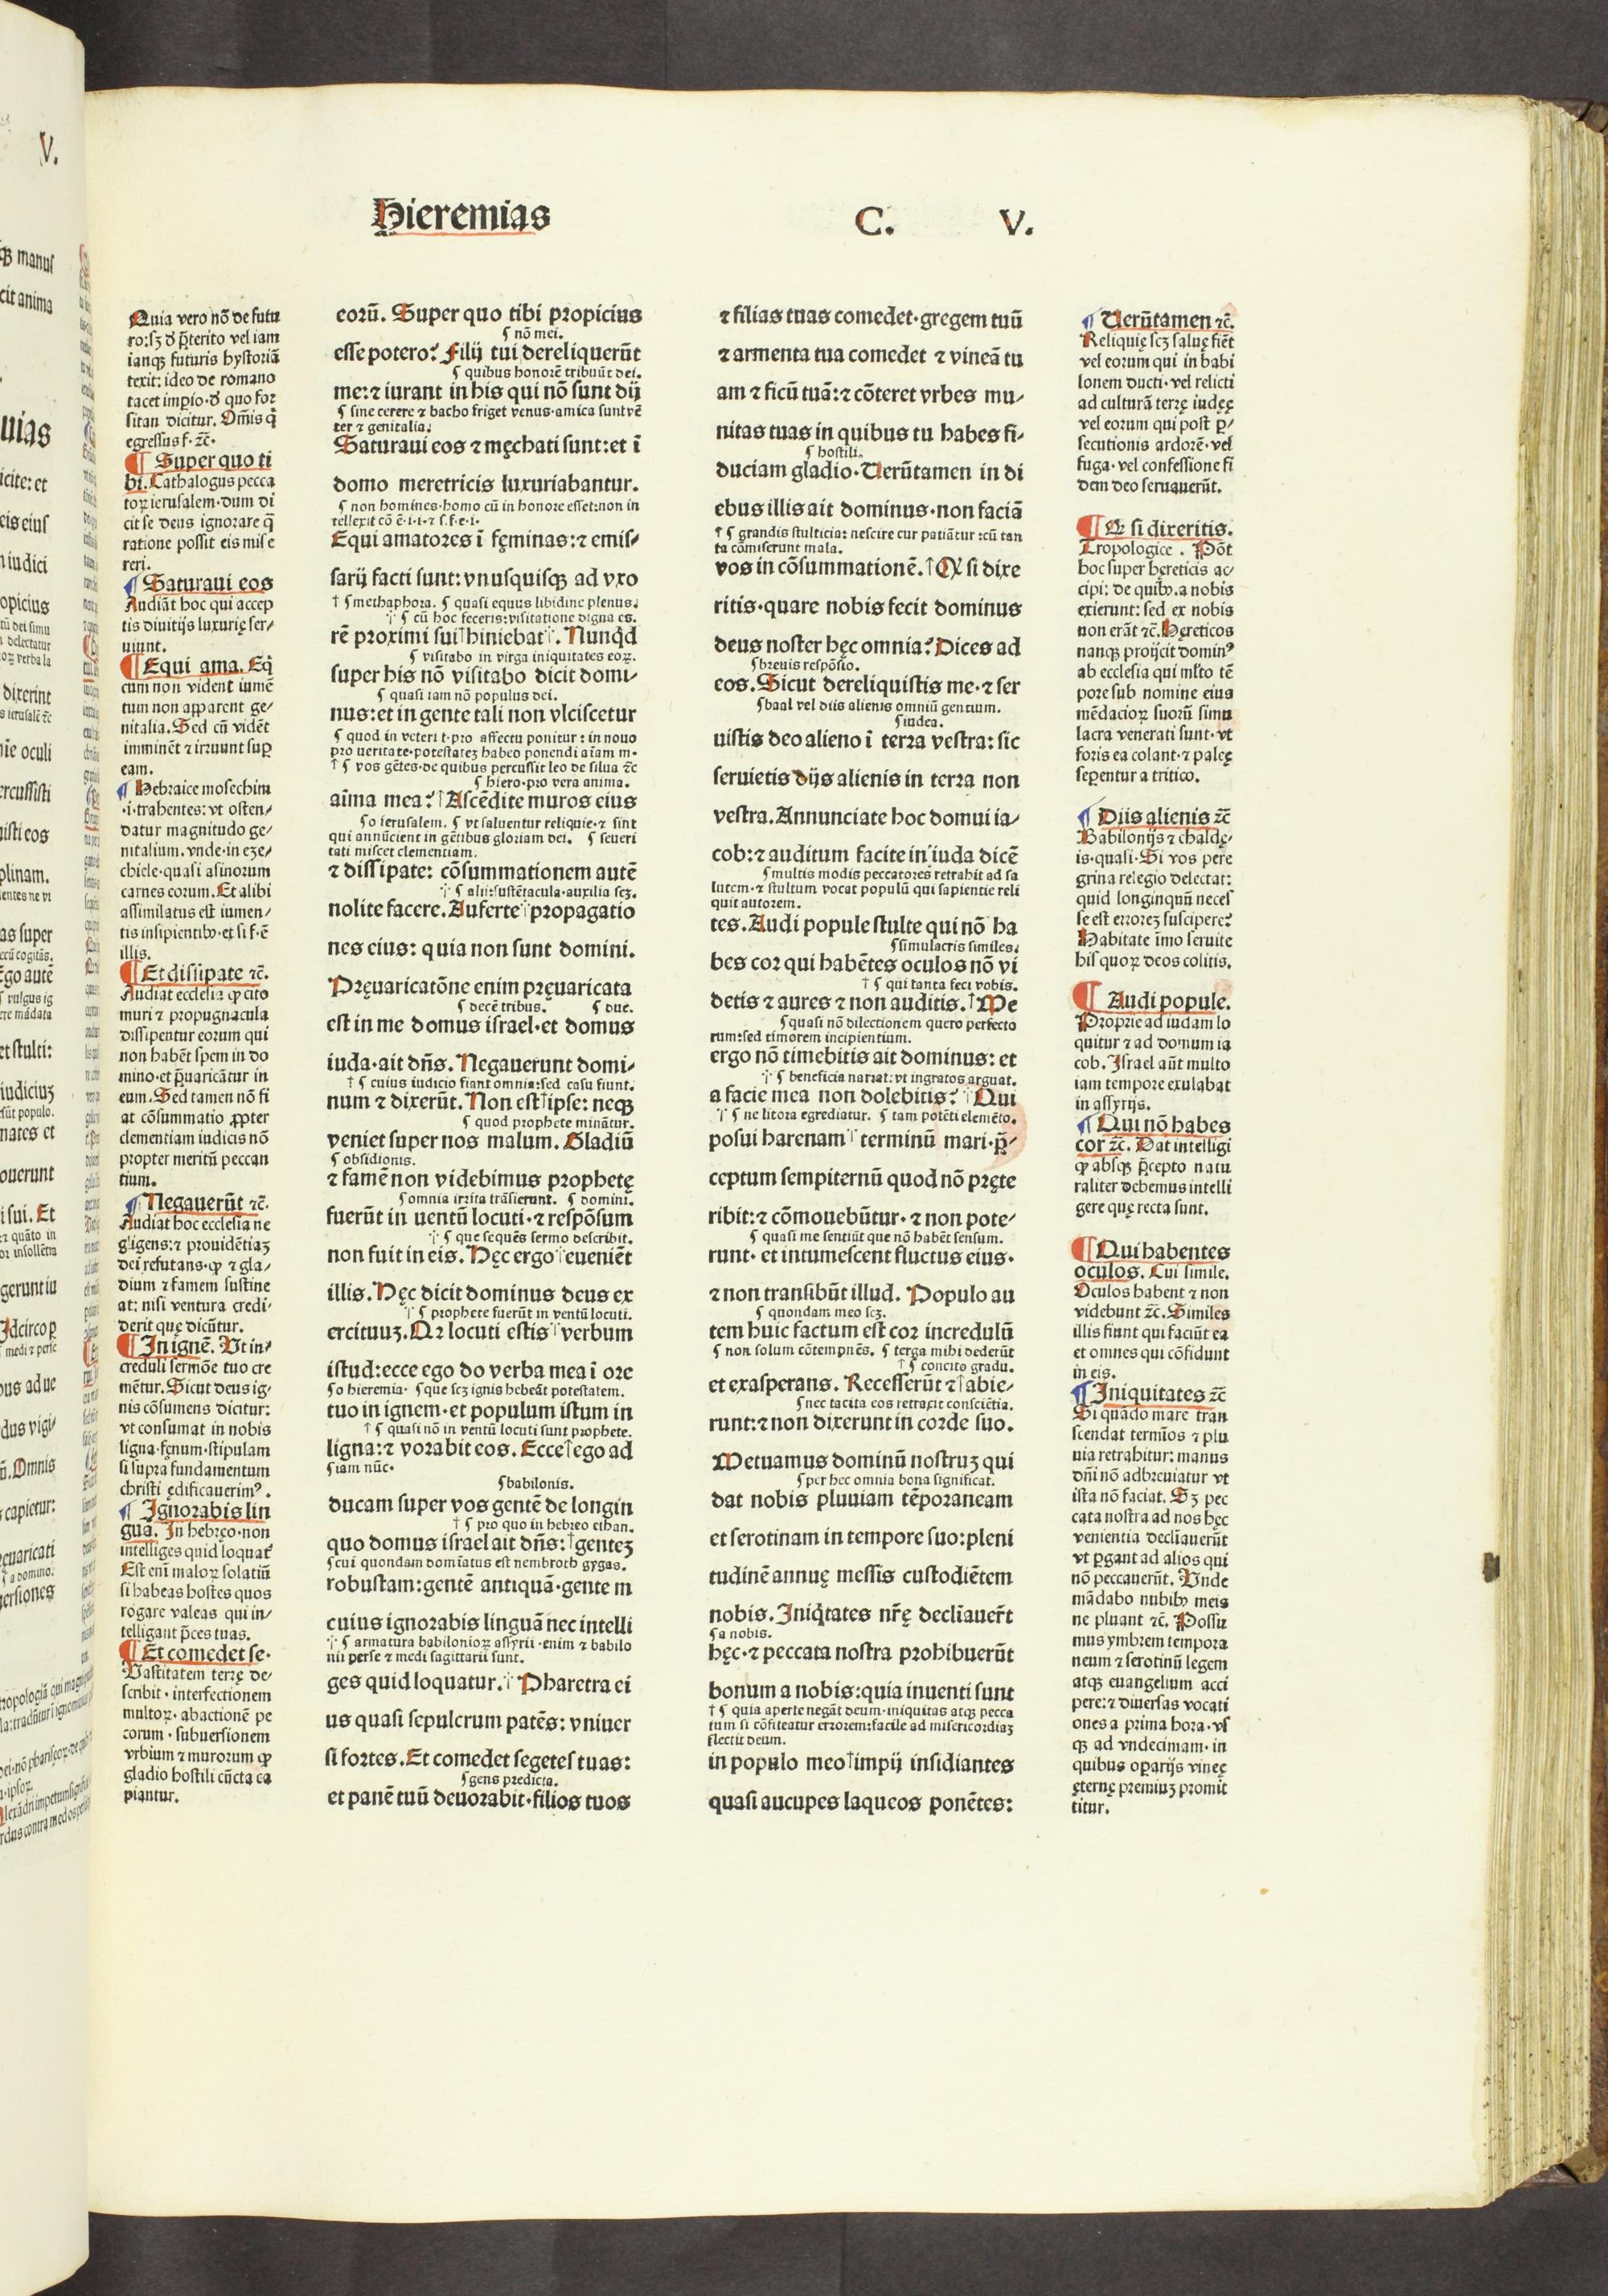 Hieremias C. V.
Quia vero nō de futu
ro:sꝫ d̄ p̄terito vel iam
iamqꝫ futuris hystoriā
texit: ideo de romano
tacet impio·d̄ quo for
sitan dicitur. Om̄is q̄
egressus f·⁊c̄·
¶ Super quo ti
bi. Cathalogus pecca
toꝝ ierusalem·dum di
cit se deus ignorare q̄
ratione possit eis mise
reri.
¶ Saturaui eos
Audiāt hoc qui accep
tis diuitijs luxurię ser⸗
uiunt.
¶ Equi ama. Eq̇
cum non vident iumē
tum non apparent ge⸗
nitalia. Sed cū vidēt
imminēt ⁊ irruunt sup̲
eam.
¶ Hebraice mosechim
·i·trahentes: vt osten⸗
datur magnitudo ge⸗
nitalium. vnde·in eze⸗
chiele·quasi asinorum
carnes eorum. Et alibi
assimilatus est iumen⸗
tis insipientibꝰ·et si f·ē
illis.
¶ Et dissipate ⁊c̄.
Audiat ecclesia ꝙ cito
muri ⁊ propugnacula
dissipentur eorum qui
non habēt spem in do
mino·et p̄uaricātur in
eum. Sed tamen nō fi
at cōsummatio ꝓpter
clementiam iudicis nō
propter meritū peccan
tium.
¶ Negauerūt ⁊c̄.
Audiat hoc ecclesia ne
gligens:⁊ prouidētiaꝫ
dei refutans·ꝙ ⁊ gla⸗
dium ⁊ famem sustine
at: nisi ventura credi⸗
derit quę dicūtur.
¶ In ignē. Vt in⸗
creduli sermōe tuo cre
mētur. Sicut deus ig⸗
nis cōsumens dicitur:
vt consumat in nobis
ligna·fęnum·stipulam
si supra fundamentum
christi ędificauerimꝰ.
¶ Ignorabis lin
gua. In hebręo·non
intelliges quid loquat᷑
Est eni̅ maloꝝ solatiū
si habeas hostes quos
rogare valeas qui in⸗
telligant p̄ces tuas.
¶ Et comedet se·
Vastitatem terrę de⸗
scribit·interfectionem
multoꝝ·abactionē pe
corum·subuersionem
vrbium ⁊ murorum ꝙ
gladio hostili cūcta ca
piantur.
eorū. Super quo tibi propicius
¶ nō mei.
esse potero? Filij tui dereliquerūt
¶ quibus honorē tribuūt dei.
me:⁊ iurant in his qui nō sunt dij
¶ sine cerere ⁊ bacho friget venus·amica sunt vē
ter ⁊ genitalia.
Saturaui eos ⁊ męchati sunt:et ī
domo meretricis luxuriabantur.
¶ non homines·homo cū in honore esset:non in
tellexit cō ē·i·i·⁊ s.f·e·i·
Equi amatores ī fęminas:⁊ emis⸗
sarij facti sunt: vnusquisqꝫ ad vxo
† ¶ methaphora. ¶ quasi equus libidine plenus.
·|· ¶ cū hoc feceris:visitatione digna es.
rē proximi sui†hiniebat·|·. Nunqḋ
¶ visitabo in virga iniquitates eoꝝ.
super his nō visitabo dicit domi⸗
¶ quasi iam nō populus dei.
nus:et in gente tali non vlciscetur
¶ quod in veteri t·pro affectu ponitur: in nouo
pro ueritate·potestateꝫ habeo ponendi aīam m·
† ¶ vos gētes·de quibus percussit leo de silua ⁊c̄
¶ hiero·pro vera anima.
aīma mea?†Ascēdite muros eius
¶o ierusalem. ¶ vt saluentur reliquie·⁊ sint
qui annūcient in gētibus gloriam dei. ¶ seueri
tati miscet clementiam.
⁊ dissipate: cōsummationem autē
·|· ¶ alij:sustētacula·auxilia scꝫ.
nolite facere. Auferte·|·propagatio
nes eius: quia non sunt domini.
Pręuaricatōne enim pręuaricata
¶ decē tribus. ¶ due.
est in me domus israel·et domus
iuda·ait dn̄s. Negauerunt domi⸗
† ¶ cuius iudicio fiant omnia:sed casu fiunt.
num ⁊ dixerūt. Non est†ipse: neqꝫ
¶ quod prophete minātur.
veniet super nos malum. Gladiū
¶ obsidionis.
⁊ famē non videbimus prophetę
¶omnia irrita trāsierunt. ¶ domini.
fuerūt in uentū locuti·⁊ respōsum
·|· ¶ que sequēs sermo describit.
non fuit in eis. Hęc ergo·|·eueniēt
illis. Hęc dicit dominus deus ex
·|· ¶ prophete fuerūt in ventū locuti.
ercituuꝫ. Qꝛ locuti estis·|·verbum
istud:ecce ego do verba mea ī ore
¶o hieremia· ¶que scꝫ ignis hebeāt potestatem.
tuo in ignem·et populum istum in
† ¶ quasi nō in ventū locuti sunt prophete.
ligna:⁊ vorabit eos. Ecce†ego ad
¶iam nūc·
¶babilonis.
ducam super vos gentē de longin
† ¶ pro quo in hebreo ethan.
quo domus israel ait dn̄s:†genteꝫ
¶cui quondam domīatus est nembroth gygas.
robustam:gentē antiquā·gente m
cuius ignorabis linguā nec intelli
·|· ¶ armatura babilonioꝝ assyrii·enim ⁊ babilo
nii perse ⁊ medi sagittarii sunt.
ges quid loquatur.·|· Pharetra ei
us quasi sepulcrum patēs: vniuer
si fortes. Et comedet segetes tuas:
¶gens predicta.
et panē tuū deuorabit·filios tuos
⁊ filias tuas comedet·gregem tuū
⁊ armenta tua comedet ⁊ vineā tu
am ⁊ ficū tuā:⁊ cōteret vrbes mu⸗
nitas tuas in quibus tu habes fi⸗
¶ hostili.
duciam gladio·Uerūtamen in di
ebus illis ait dominus·non faciā
† ¶ grandis stulticia: nescire cur patiātur:cū tan
ta cōmiserunt mala.
vos in cōsummationē.†Qꝛ si dixe
ritis·quare nobis fecit dominus
deus noster hęc omnia? Dices ad
¶breuis respōsio.
eos. Sicut dereliquistis me·⁊ ser
¶baal vel diis alienis omniū gentium.
¶iudea.
uistis deo alieno ī terra vestra: sic
seruietis dijs alienis in terra non
vestra. Annunciate hoc domui ia⸗
cob:⁊ auditum facite in iuda dicē
¶multis modis peccatores retrahit ad sa
lutem·⁊ stultum vocat populū qui sapientie reli
quit autorem.
tes. Audi popule stulte qui nō ha
¶simulacris similes.
bes cor qui habētes oculos nō vi
† ¶ qui tanta feci vobis.
detis ⁊ aures ⁊ non auditis.†Me
¶quasi nō dilectionem quero perfecto
rum:sed timorem incipientium.
ergo nō timebitis ait dominus: et
·|· ¶ beneficia narrat: vt ingratos arguat.
a facie mea non dolebitis?·|·Qui
·|· ¶ ne litora egrediatur. ¶ tam potēti elemēto.
posui harenam·|· terminū mari·p̄⸗
ceptum sempiternū quod nō pręte
ribit:⁊ cōmouebūtur·⁊ non pote⸗
¶ quasi me sentiūt que nō habēt sensum.
runt·et intumescent fluctus eius·
⁊ non transibūt illud. Populo au
¶ quondam meo scꝫ.
tem huic factum est cor incredulū
¶ non solum cōtempnēs. ¶ terga mihi dederūt
† ¶ concito gradu.
et exasperans. Recesserūt ⁊†abie⸗
¶nec tacita eos retraxit consciētia.
runt:⁊ non dixerunt in corde suo.
Metuamus dominū nostruꝫ qui
¶per hec omnia bona significat.
dat nobis pluuiam tēporaneam
et serotinam in tempore suo:pleni
tudinē annuę messis custodiētem
nobis. Iniq̇tates nr̄ę declīauer̄t
¶a nobis.
hęc·⁊ peccata nostra prohibuerūt
bonum a nobis:quia inuenti sunt
† ¶ quia aperte negāt deum·iniquitas atqꝫ pecca
tum si cōfiteatur errorem:facile ad misericordiaꝫ
flectit deum.
in populo meo†impij insidiantes
quasi aucupes laqueos ponētes:
¶ Uerūtamen ⁊c̄.
Reliquię scꝫ saluę fiēt
vel eorum qui in babi
lonem ducti·vel relicti
ad culturā terrę iudęę
vel eorum qui post p̲⸗
secutionis ardorē·vel
fuga·vel confessione fi
dem deo seruauerūt.
¶ Qꝛ si dixeritis.
Tropologice. Pōt
hoc super hęreticis ac⸗
cipi: de quibꝰ.a nobis
exierunt: sed ex nobis
non erāt ⁊c̄. Hęreticos
nanqꝫ proijcit dominꝰ
ab ecclesia qui ml̄to tē
pore sub nomine eius
mēdacioꝝ suorū simu
lacra venerati sunt·vt
foris ea colant·⁊ palęę
sep̲entur a tritico.
¶ Diis alienis ⁊c̄
Babilonijs ⁊ chaldę⸗
is·quasi·Si vos pere
grina relegio delectat:
quid longinquū neces
se est erroreꝫ suscipere?
Habitate īmo seruite
his quoꝝ deos colitis.
¶ Audi popule.
Proprie ad iudam lo
quitur ⁊ ad domum ia
cob. Israel aūt multo
iam tempore exulabat
in assyrijs.
¶ Qui nō habes
cor ⁊c̄. Dat intelligi
ꝙ absqꝫ p̄cepto natu
raliter debemus intelli
gere quę recta sunt.
¶ Qui habentes
oculos. Cui simile.
Oculos habent ⁊ non
videbunt ⁊c̄. Similes
illis fiunt qui faciūt ea
et omnes qui cōfidunt
in eis.
¶ Iniquitates ⁊c̄
Si quādo mare tran
scendat termīos ⁊ plu
uia retrahitur: manus
dn̄i nō adbreuiatur vt
ista nō faciat. Sꝫ pec
cata nostra ad nos hęc
venientia declīauerūt
vt p̲gant ad alios qui
nō peccauerūt. Vnde
mādabo nubibꝰ meis
ne pluant ⁊c̄. Possu
mus ymbrem tempora
neum ⁊ serotinū legem
atqꝫ euangelium acci
pere:⁊ diuersas vocati
ones a prima hora·vs
qꝫ ad vndecimam·in
quibus op̲arijs vineę
ęternę premiuꝫ promit
titur.